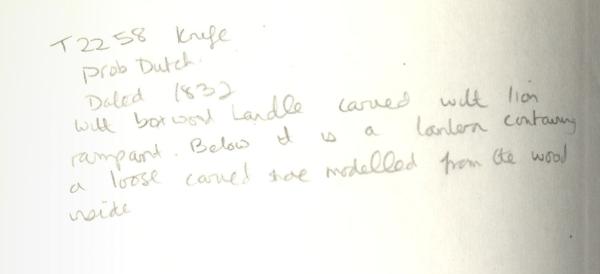 T2258 Knife
Prob Dutch.
Dated 1832
with boxwood handle carved with lion
rampant. Below it is a lantern containing
a loose carved modelled from the wood
inside